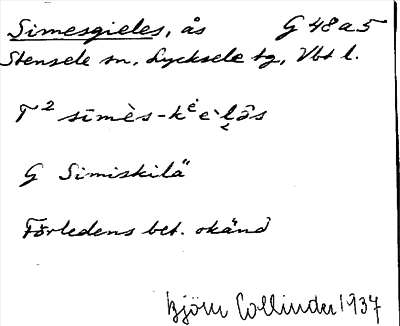 Simesgieles, ås G 48 a 5
Stensele sn, Lycksele tg, Vbt l.
T² sīmès-kėe·l̬ās
G Simiskilä
Förledens bet. okänd
Björn Collinder 1937